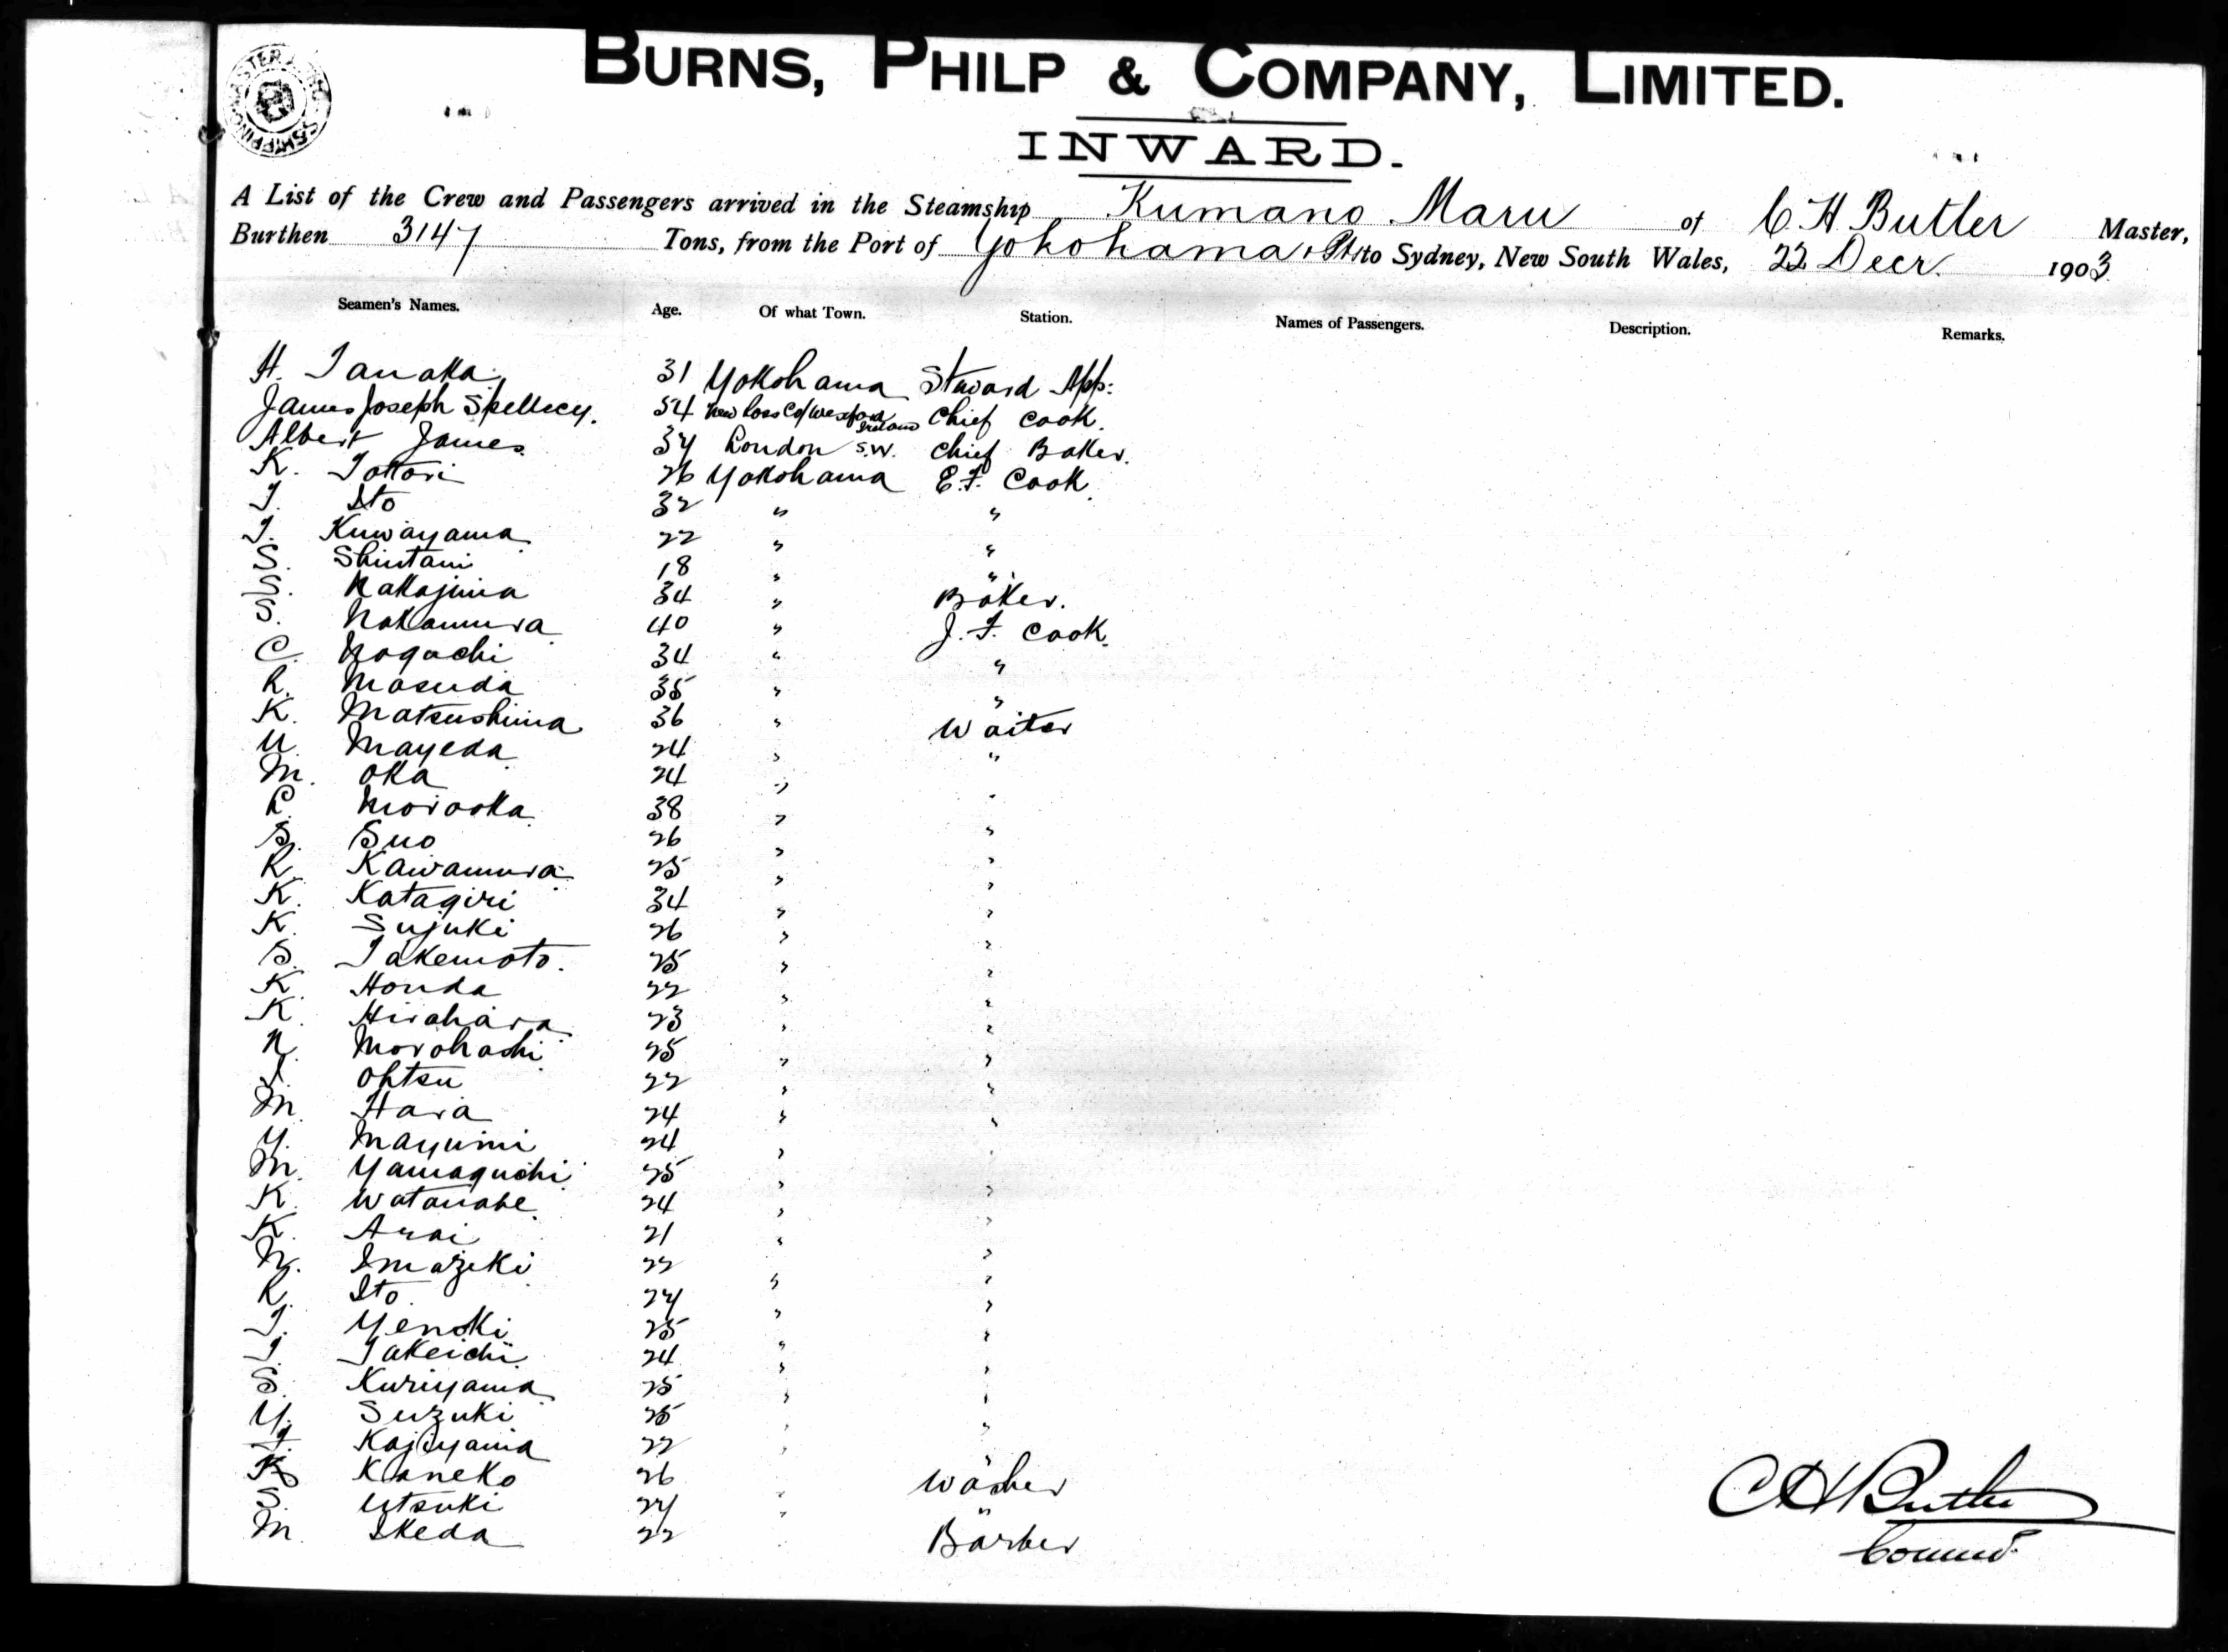 BURNS, PHILP & COMPANY, LIMITED.
INWARD.
A List of the Crew and Passengers arrived in the Steamship Kumano Maru of C. H. Butler Master,
Burthen 3147 Tons, from the Port of Yokohama & Pts to Sydney, New South Wales, 22 Decr. 1903
Seamen's Names. Age. Of what Town. Station. Names of Passengers. Description. Remarks.
H. Tanaka. 31 Yokohama Steward App:
James Joseph Spellecy. 54 New Ross Co/Wexford Ireland Chief Cook.
Albert James. 37 London S.W. Chief Baker.
K. Tottori 26 Yokohama E.F. Cook.
T. Ito 32 " "
T. Kuwayama. 22 " "
S. Shintani 18 " "
S. Nakajima 34 " Baker.
S. Nakamura 40 " J.F. Cook.
C. Noguchi 34 " "
R. Masuda 35 " "
K. Matsushima 36 " Waiter
U. Mayeda 24 " "
M. Oka 24 " "
R. Morooka 38 " "
S. Suo 26 " "
K. Kawamura 25 " "
K. Katagiri 34 " "
K. Sujuki 26 " "
S. Takemoto. 25 " "
K. Honda 22 " "
K. Hirahara 23 " "
N. Morohashi 25 " "
I. Ohtsu 22 " "
M. Hara 24 " "
Y. Mayumi 24 " "
M. Yamaguchi 25 " "
K. Watanabe 24 " "
K. Arai 21 " "
N. Imazeki 22 " "
K. Ito. 27 " "
T. Yenoki 25 " "
T. Takeichi 24 " "
S. Kuriyama 25 " "
Y. Suzuki 25 " "
T. Kajiyama 22 " "
K. Kaneko 26 " Washer
S. Utsuki 27 " "
M. Ikeda 22 " Barber
C H Butler
Command.